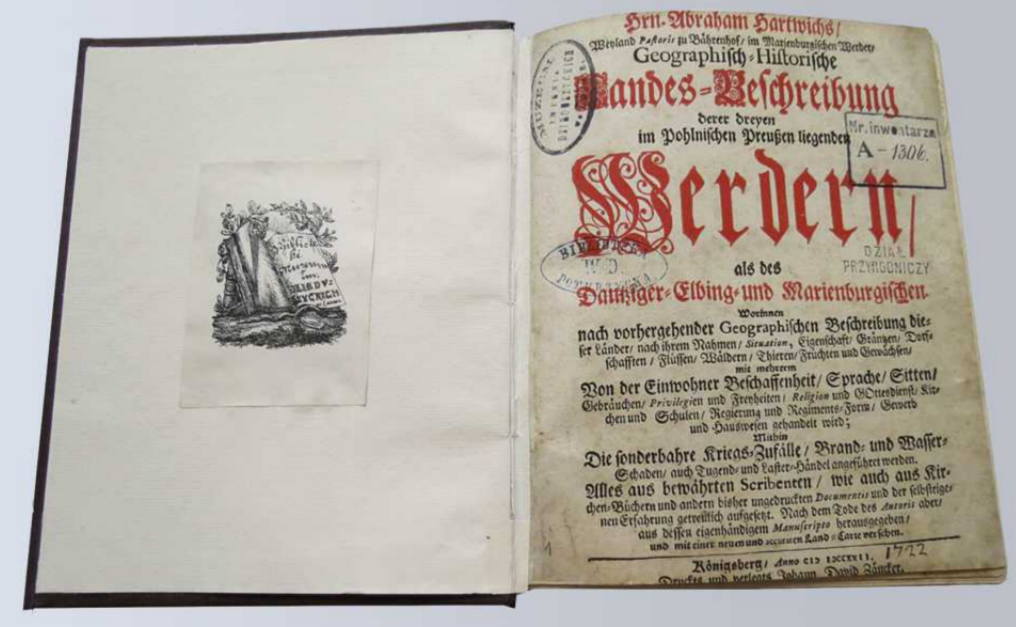 Biblioteka
Muzeum
im.
DZIADU-
SZYCKICH
Hrn. Abraham Hartwichs/
Weyland Pastoris zu Bährenhof/ im Marienburgischen Werder/
Geographisch-Historische
Landes-Beschreibung
derer dreyen
im Pohlnischen Preußen liegenden
Werdern/
als des
Dantziger-Elbing-und Marienburgischen.
Worinnen
nach vorhergehender Geographischen Beschreibung die-
ser Länder/ nach ihrem Nahmen/ Situation, Eigenschafft/ Gräntzen/ Dorf-
schafften/ Flüssen/ Wäldern/ Thieren/ Früchten und Gewächsen/
mit mehrerm
Von der Einwohner Beschaffenheit/ Sprache/ Sitten/
Gebräuchen/ Privilegien und Freyheiten/ Religion und GOttesdienst/ Kir-
chen und Schulen/ Regierung und Regiments-Form/ Gewerb
und Hauswesen gehandelt wird;
Mithin
Die sonderbahre Kriegs-Zufälle/ Brand- und Wasser-
Schaden/ auch Tugend- und Laster-Händel angeführet werden.
Alles aus bewährten Scribenten/ wie auch aus Kir-
chen-Büchern und andern bisher ungedruckten Documentis und der selbsteige-
nen Erfahrung getreulich aufgesetzt. Nach dem Tode des Autoris aber/
aus dessen eigenhändigem Manuscripto herausgegeben/
und mit einer neuen und accuraten Land-Carte versehen.
Königsberg/ Anno CIƆ IƆCCXXII.
1722
Druckts und verlegts Johann David Zäncker.
MUZEUM
IMIENIA
DZIEDUSZYCKICH
Nr. inwentarza
A - 1306.
BIBLIOTEKA
POTURZYCKA
DZIAŁ
PRZYRODNICZY